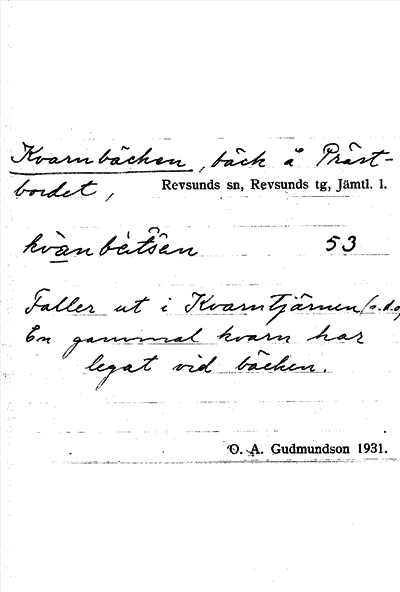 Kvarnbäcken, bäck å Präst-
bordet,
Revsunds sn, Revsunds tg, Jämtl. l.
53
Faller ut i Kvarntjärnen (s.d.o)
En gammal kvarn har
legat vid bäcken.
O. A. Gudmundson 1931.